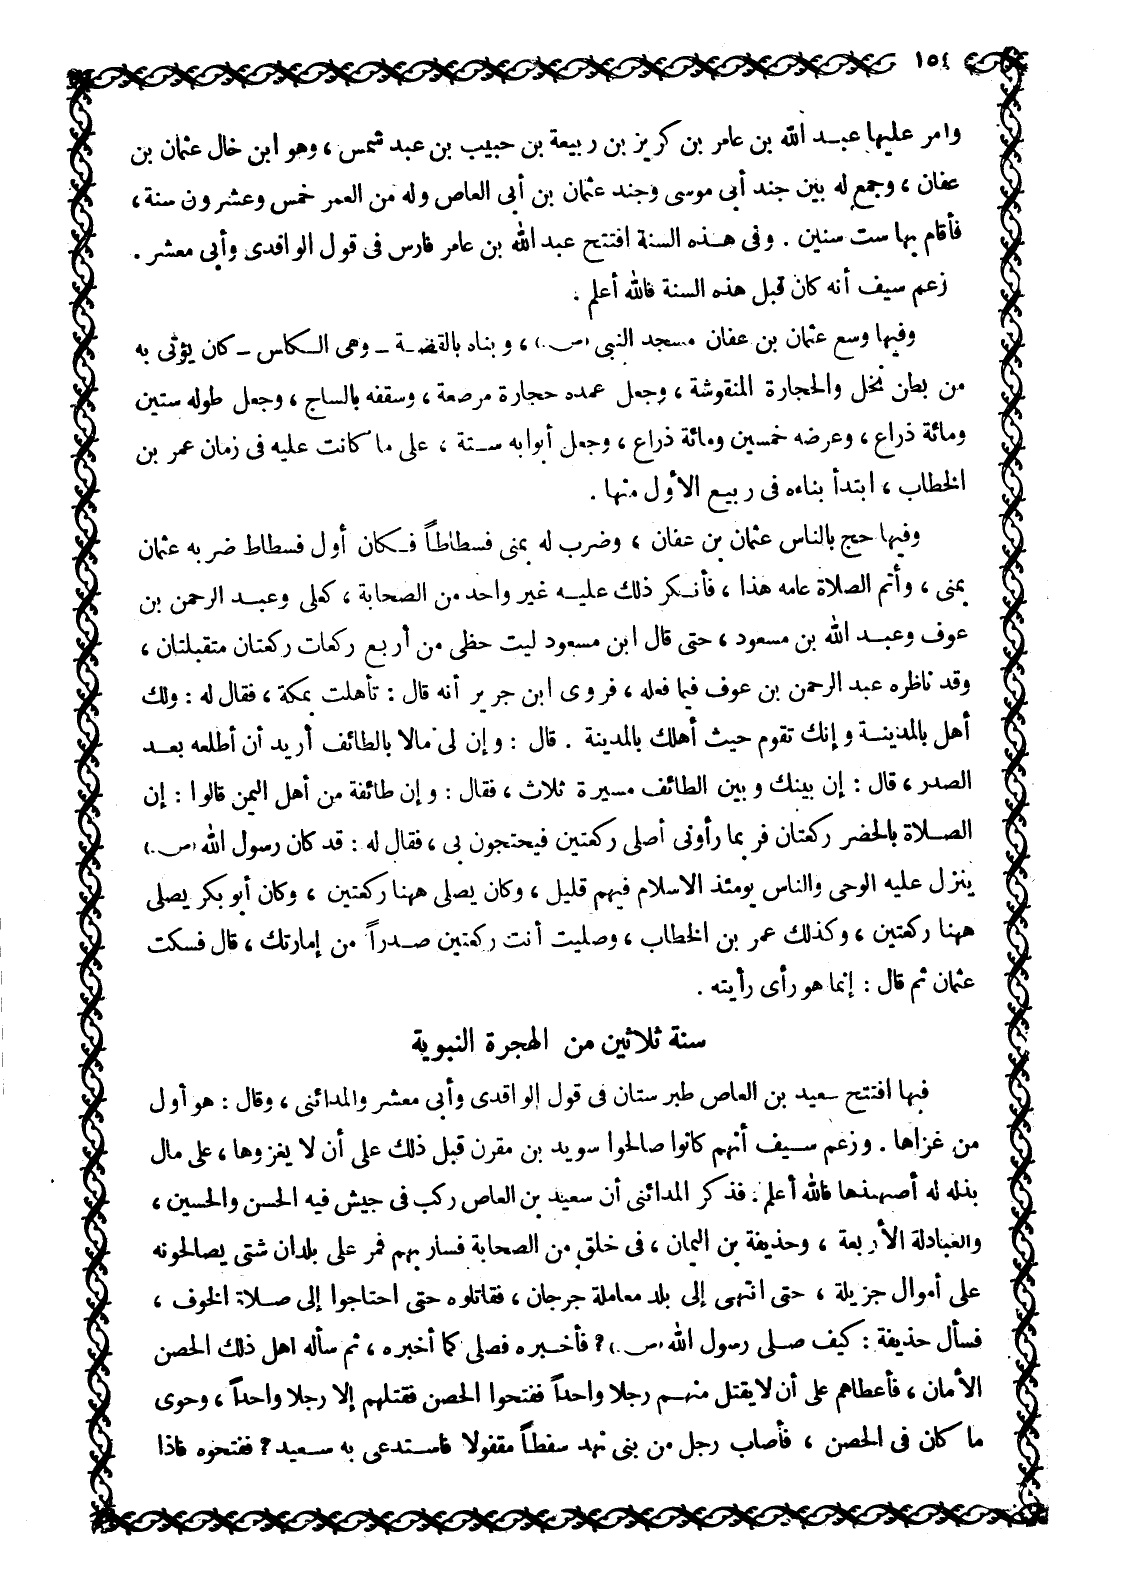 ١٥٤
وأمر عليها عبد الله بن عامر بن كريز بن ربيعة بن حبيب بن عبد شمس ، وهو ابن خال عثمان بن
عفان ، وجمع له بين جند أبي موسى وجند عثمان بن أبي العاص وله من العمر خمس وعشرون سنة ،
فأقام بها ست سنين . وفى هذه السنة افتتح عبد الله بن عامر فارس فى قول الواقدى وأبي معشر .
زعم سيف أنه كان قبل هذه السنة فالله أعلم .
وفيها وسع عثمان بن عفان مسجد النبى (ص.) ، وبناه بالقضة ــ وهى الكاس ــ كان يؤتى به
من بطن نخل والحجارة المنقوشة ، وجعل عمده حجارة مرصعة ، وسقفه بالساج ، وجعل طوله ستين
ومائة ذراع ، وعرضه خمسين ومائة ذراع ، وجعل أبوابه ستة ، على ما كانت عليه فى زمان عمر بن
الخطاب ، ابتدأ بناءه فى ربيع الأول منها .
وفيها حج بالناس عثمان بن عفان ، وضرب له بمنى فسطاطاً فكان أول فسطاط ضربه عثمان
بمنى ، وأتم الصلاة عامه هذا ، فأنكر ذلك عليه غير واحد من الصحابة ، كعلى وعبد الرحمن بن
عوف وعبد الله بن مسعود ، حتى قال ابن مسعود ليت حظى من أربع ركعات ركعتان متقبلتان ،
وقد ناظره عبد الرحمن بن عوف فيما فعله ، فروى ابن جرير أنه قال : تأهلت بمكة ، فقال له : ولك
أهل بالمدينة وإنك تقوم حيث أهلك بالمدينة . قال : وإن لى مالا بالطائف أريد أن أطلعه بعد
الصدر ، قال : إن بينك وبين الطائف مسيرة ثلاث ، فقال : وإن طائفة من أهل اليمن قالوا : إن
الصلاة بالحضر ركعتان فربما رأونى أصلى ركعتين فيحتجون بى ، فقال له : قد كان رسول الله (ص.)
ينزل عليه الوحى والناس يومئذ الاسلام فيهم قليل ، وكان يصلى ههنا ركعتين ، وكان أبو بكر يصلى
ههنا ركعتين ، وكذلك عمر بن الخطاب ، وصليت أنت ركعتين صدراً من إمارتك ، قال فسكت
عثمان ثم قال : إنما هو رأى رأيته .
سنة ثلاثين من الهجرة النبوية
فيها افتتح سعيد بن العاص طبرستان فى قول الواقدى وأبي معشر والمدائنى ، وقال : هو أول
من غزاها . وزعم سيف أنهم كانوا صالحوا سويد بن مقرن قبل ذلك على أن لا يغزوها ، على مال
بذله له أصبهبذها فالله أعلم . فذكر المدائنى أن سعيد بن العاص ركب فى جيش فيه الحسن والحسين ،
والعبادلة الأربعة ، وحذيفة بن اليمان ، فى خلق من الصحابة فسار بهم فمر على بلدان شتى يصالحونه
على أموال جزيلة ، حتى انتهى إلى بلد معاملة جرجان ، فقاتلوه حتى احتاجوا إلى صلاة الخوف ،
فسأل حذيفة : كيف صلى رسول الله (ص.) ؟ فأخبره فصلى كما أخبره ، ثم سأله اهل ذلك الحصن
الأمان ، فأعطاهم على أن لا يقتل منهم رجلا واحداً ففتحوا الحصن فقتلهم إلا رجلا واحداً ، وحوى
ما كان فى الحصن ، فأصاب رجل من بنى نهد سفطاً مقفولا فاستدعى به سعيد ؟ ففتحوه فاذا